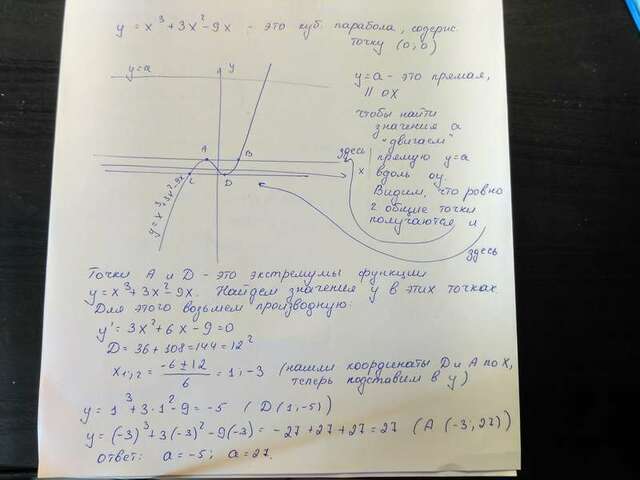 y = x³+3x²-9x - это куб. парабола, содерж.
точку (0,0)
y=a
y
y=a - это прямая,
|| OX
чтобы найти
значения a
"двигаем"
прямую y=a
вдоль oy.
Видим, что ровно
2 общие точки
получаются и
здесь
здесь
x
A
B
C
D
y=x³+3x²-9x
Точки A и D - это экстремумы функции
y=x³+3x²-9x. Найдем значения y в этих точках.
Для этого возьмем производную:
y' = 3x²+6x-9=0
D = 36+108=144=12²
x₁,₂ = (-6±12)/6 = 1; -3 (нашли координаты D и A по X,
теперь подставим в y)
y = 1³+3·1²-9 = -5 (D(1;-5))
y = (-3)³+3(-3)²-9(-3) = -27+27+27=27 (A (-3;27))
ответ: a=-5; a=27.